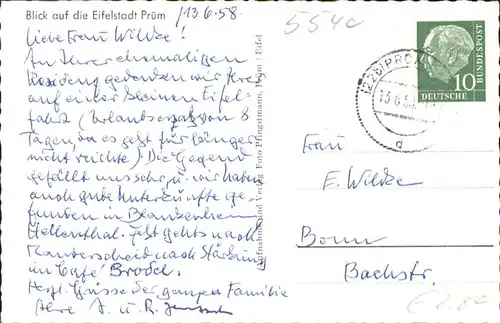 Blick auf die Eifelstadt Prüm /13.6.58.
Liebe Frau Wilcke!
An Ihrer ehemaligen
Residenz gedenken wir Ihrer
auf einer kleinen Eifel-
fahrt (Urlaubsersatz von 8
Tagen, da es jetzt für länger
nicht reichte) Die Gegend
gefällt uns sehr, u. wir haben
auch gute Unterkünfte ge-
funden in Blankenheim
Hellenthal. Jetzt gehts nach
Manderscheid nach Stärkung
im Café Brodel.
Herzl. Grüsse der ganzen Familie
Ihre A. u. R.
Aufnahme und Verlag Foto Pfingstmann, Prüm / Eifel
554c
DEUTSCHE
BUNDESPOST
10
(22b) PRÜM
13.6.58
d
Frau
E. Wilcke
Bonn
Bachstr.